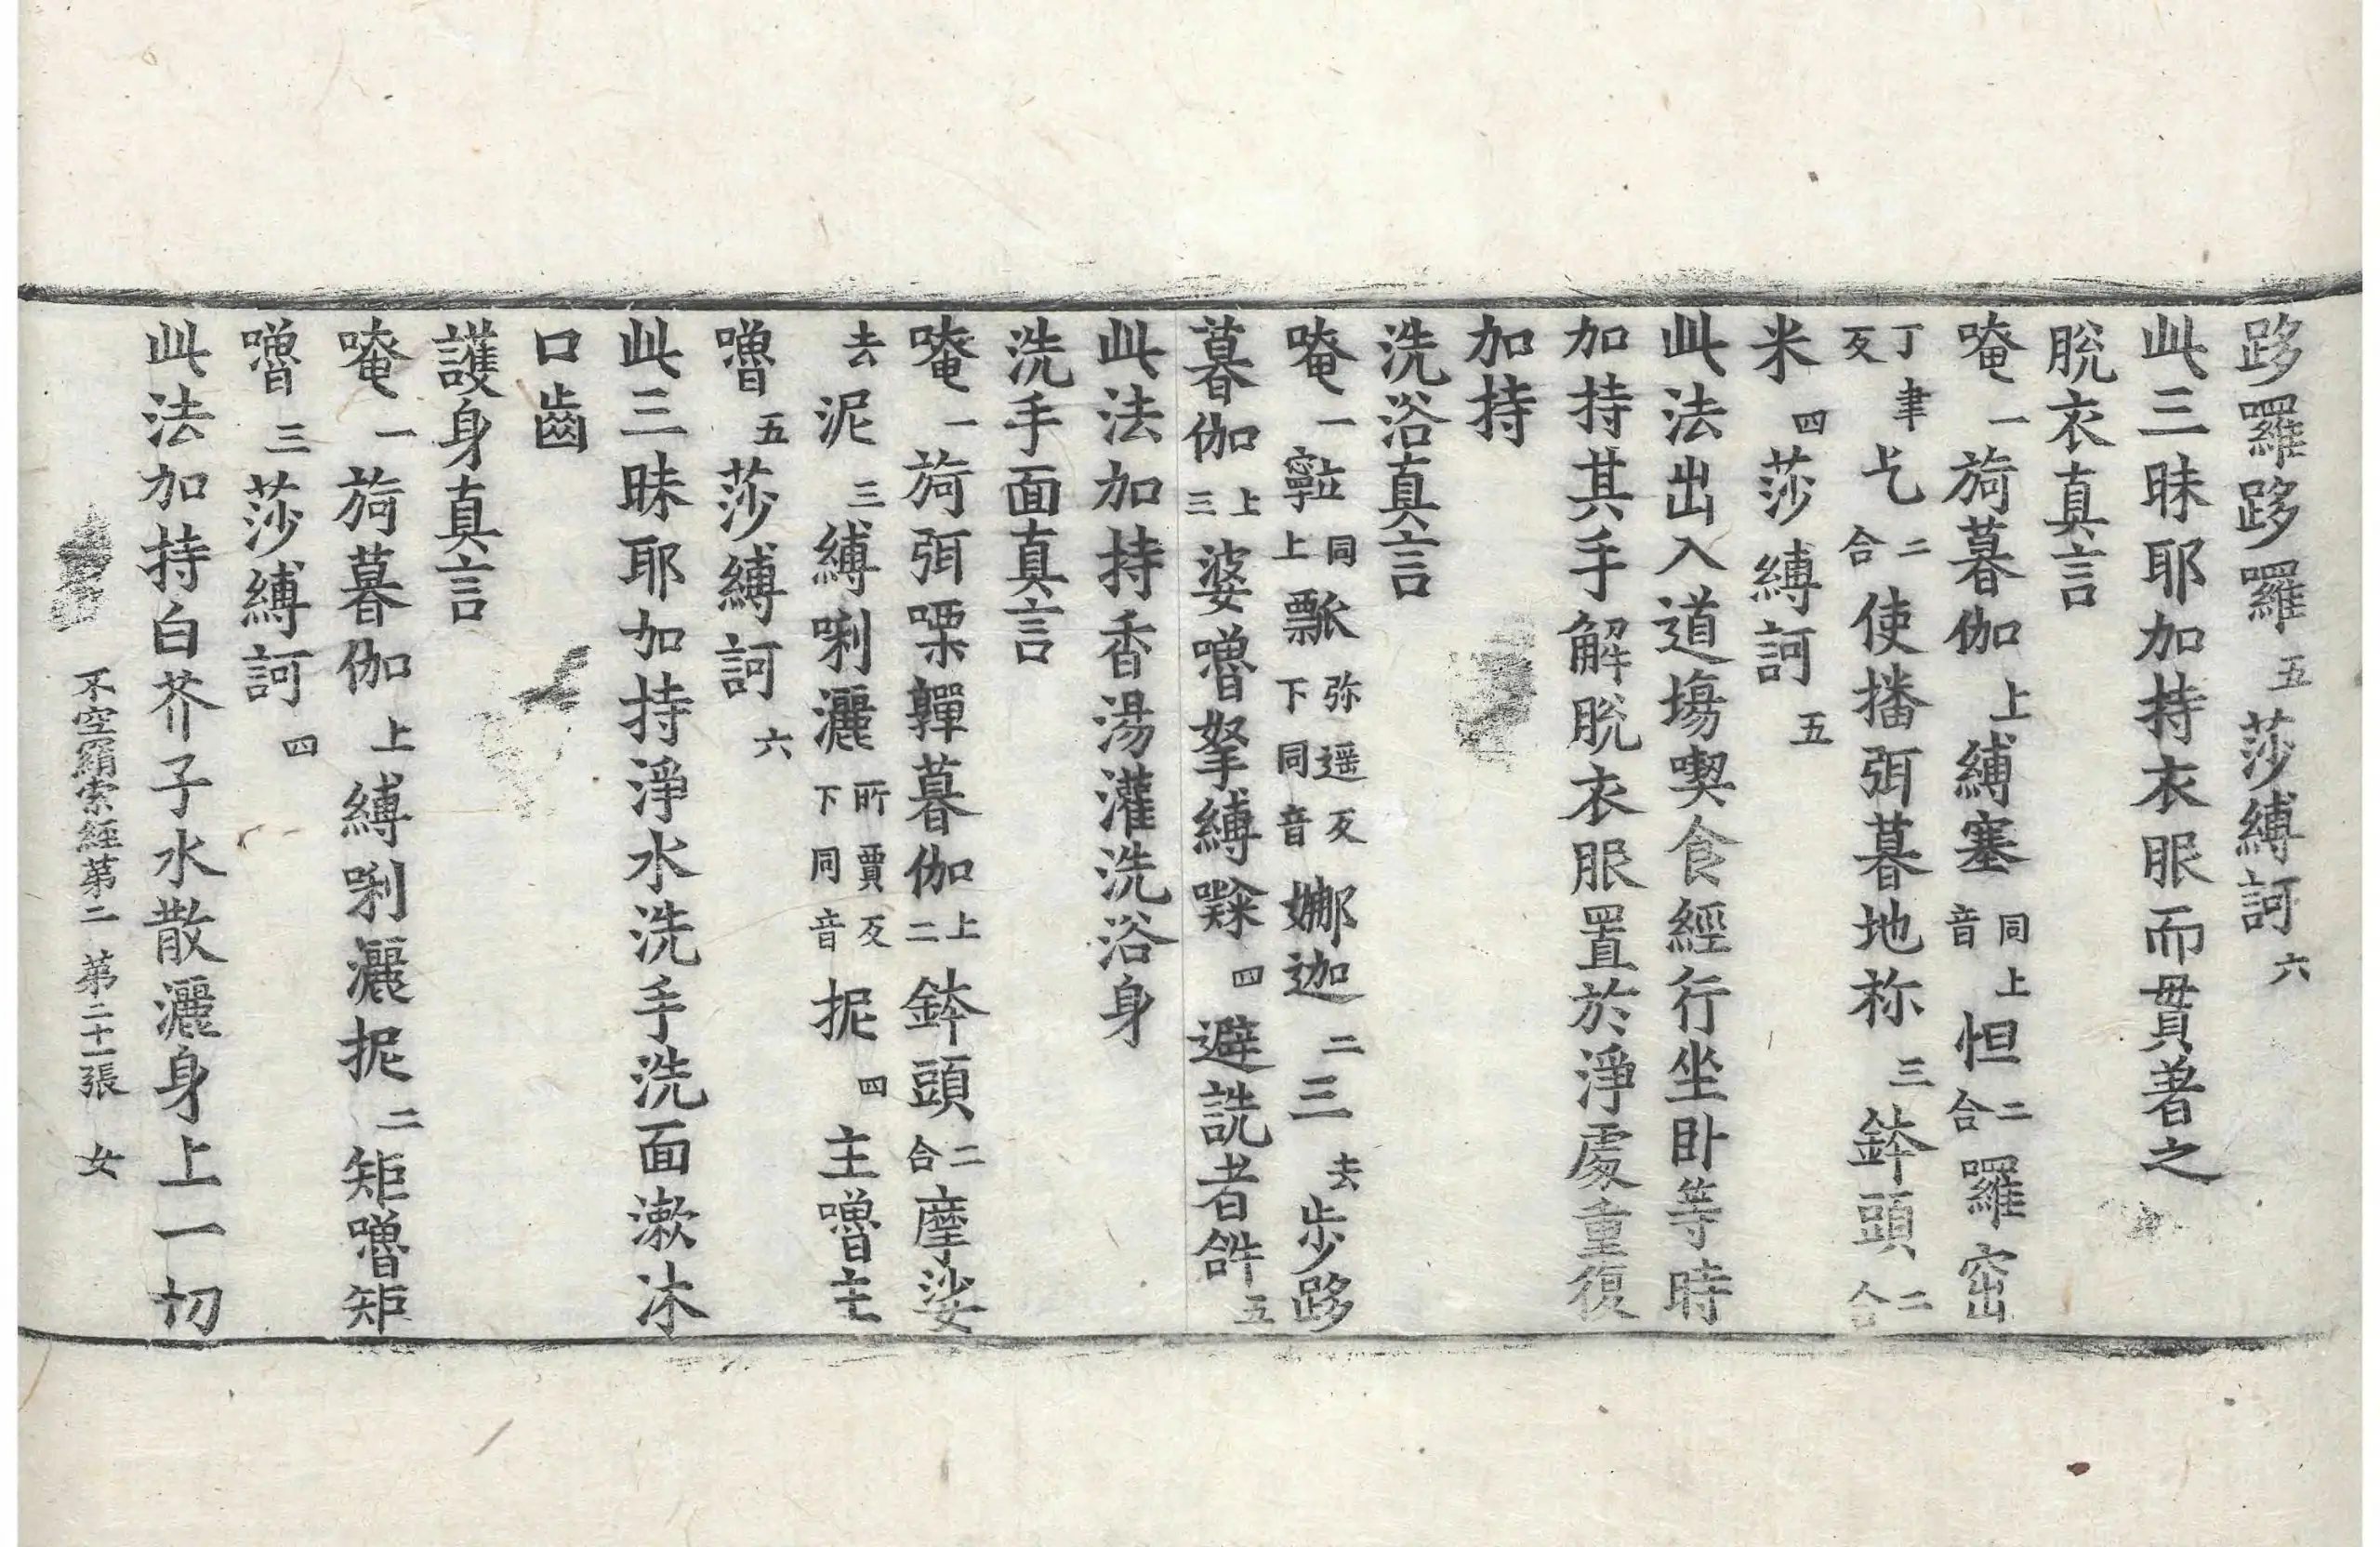 跢囉跢囉五莎縛訶六
此三昧耶加持衣服而貫著之
脫衣真言
唵一旖暮伽上縛塞同上音怛二合羅窋
丁聿反⺊二合使播弭暮地祢三鉢頭二合
米四莎縛訶五
此法出入道場喫食經行坐卧等時
加持其手解脫衣服置於淨處重復
加持
洗浴真言
唵一同上飄弥遥反下同音娜迦二三去步跢
暮伽上三婆嚕拏縛㘑四避詵者斜五
此法加持香湯灌洗浴身
洗手面真言
唵一旖弭㗚亸暮伽上二鉢頭二合摩娑
去泥三縛唎灑所賈反下同音抳四主嚕主
嚕五莎縛訶六
此三昧耶加持淨水洗手洗面漱沐
口齒
護身真言
唵一旖暮伽上縛唎灑抳二矩嚕矩
嚕三莎縛訶四
此法加持白芥子水散灑身上一切
不空羂索經第二 第二十一張 女